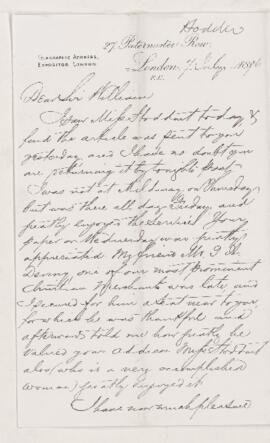 Hodder
27 Paternoster Row,
TELEGRAPHIC ADDRESS,
EXPOSITOR LONDON
London, 7 July 1896
E.C.
Dear Sir William
I saw Miss Stoddart today &
find the article was sent to you
yesterday and I have no doubt you
are returning it by tonight's post
I was not at Mildmay on Thursday
but was there all day Friday and
greatly enjoyed the services Your
paper on Wednesday was greatly
appreciated My friend Mr
one of our most prominent
Christian Merchants was late and
I secured for him a seat near to you,
for which he was thankful and
afterwards told me how greatly he
valued your address Miss Stoddart
also (who is a very accomplished
woman) greatly enjoyed it
I have now much pleasure